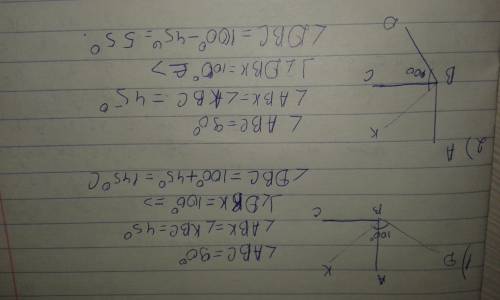 1)
D A K
100°
B C
∠ABC=90°
∠ABK=∠KBC=45°
∠DBK=100° =>
∠DBC=100°+45°=145°C
2) A
K
B 100° C
D
∠ABC=90°
∠ABK=∠KBC=45°
∠DBK=100° =>
∠DBC=100°-45°=55°.